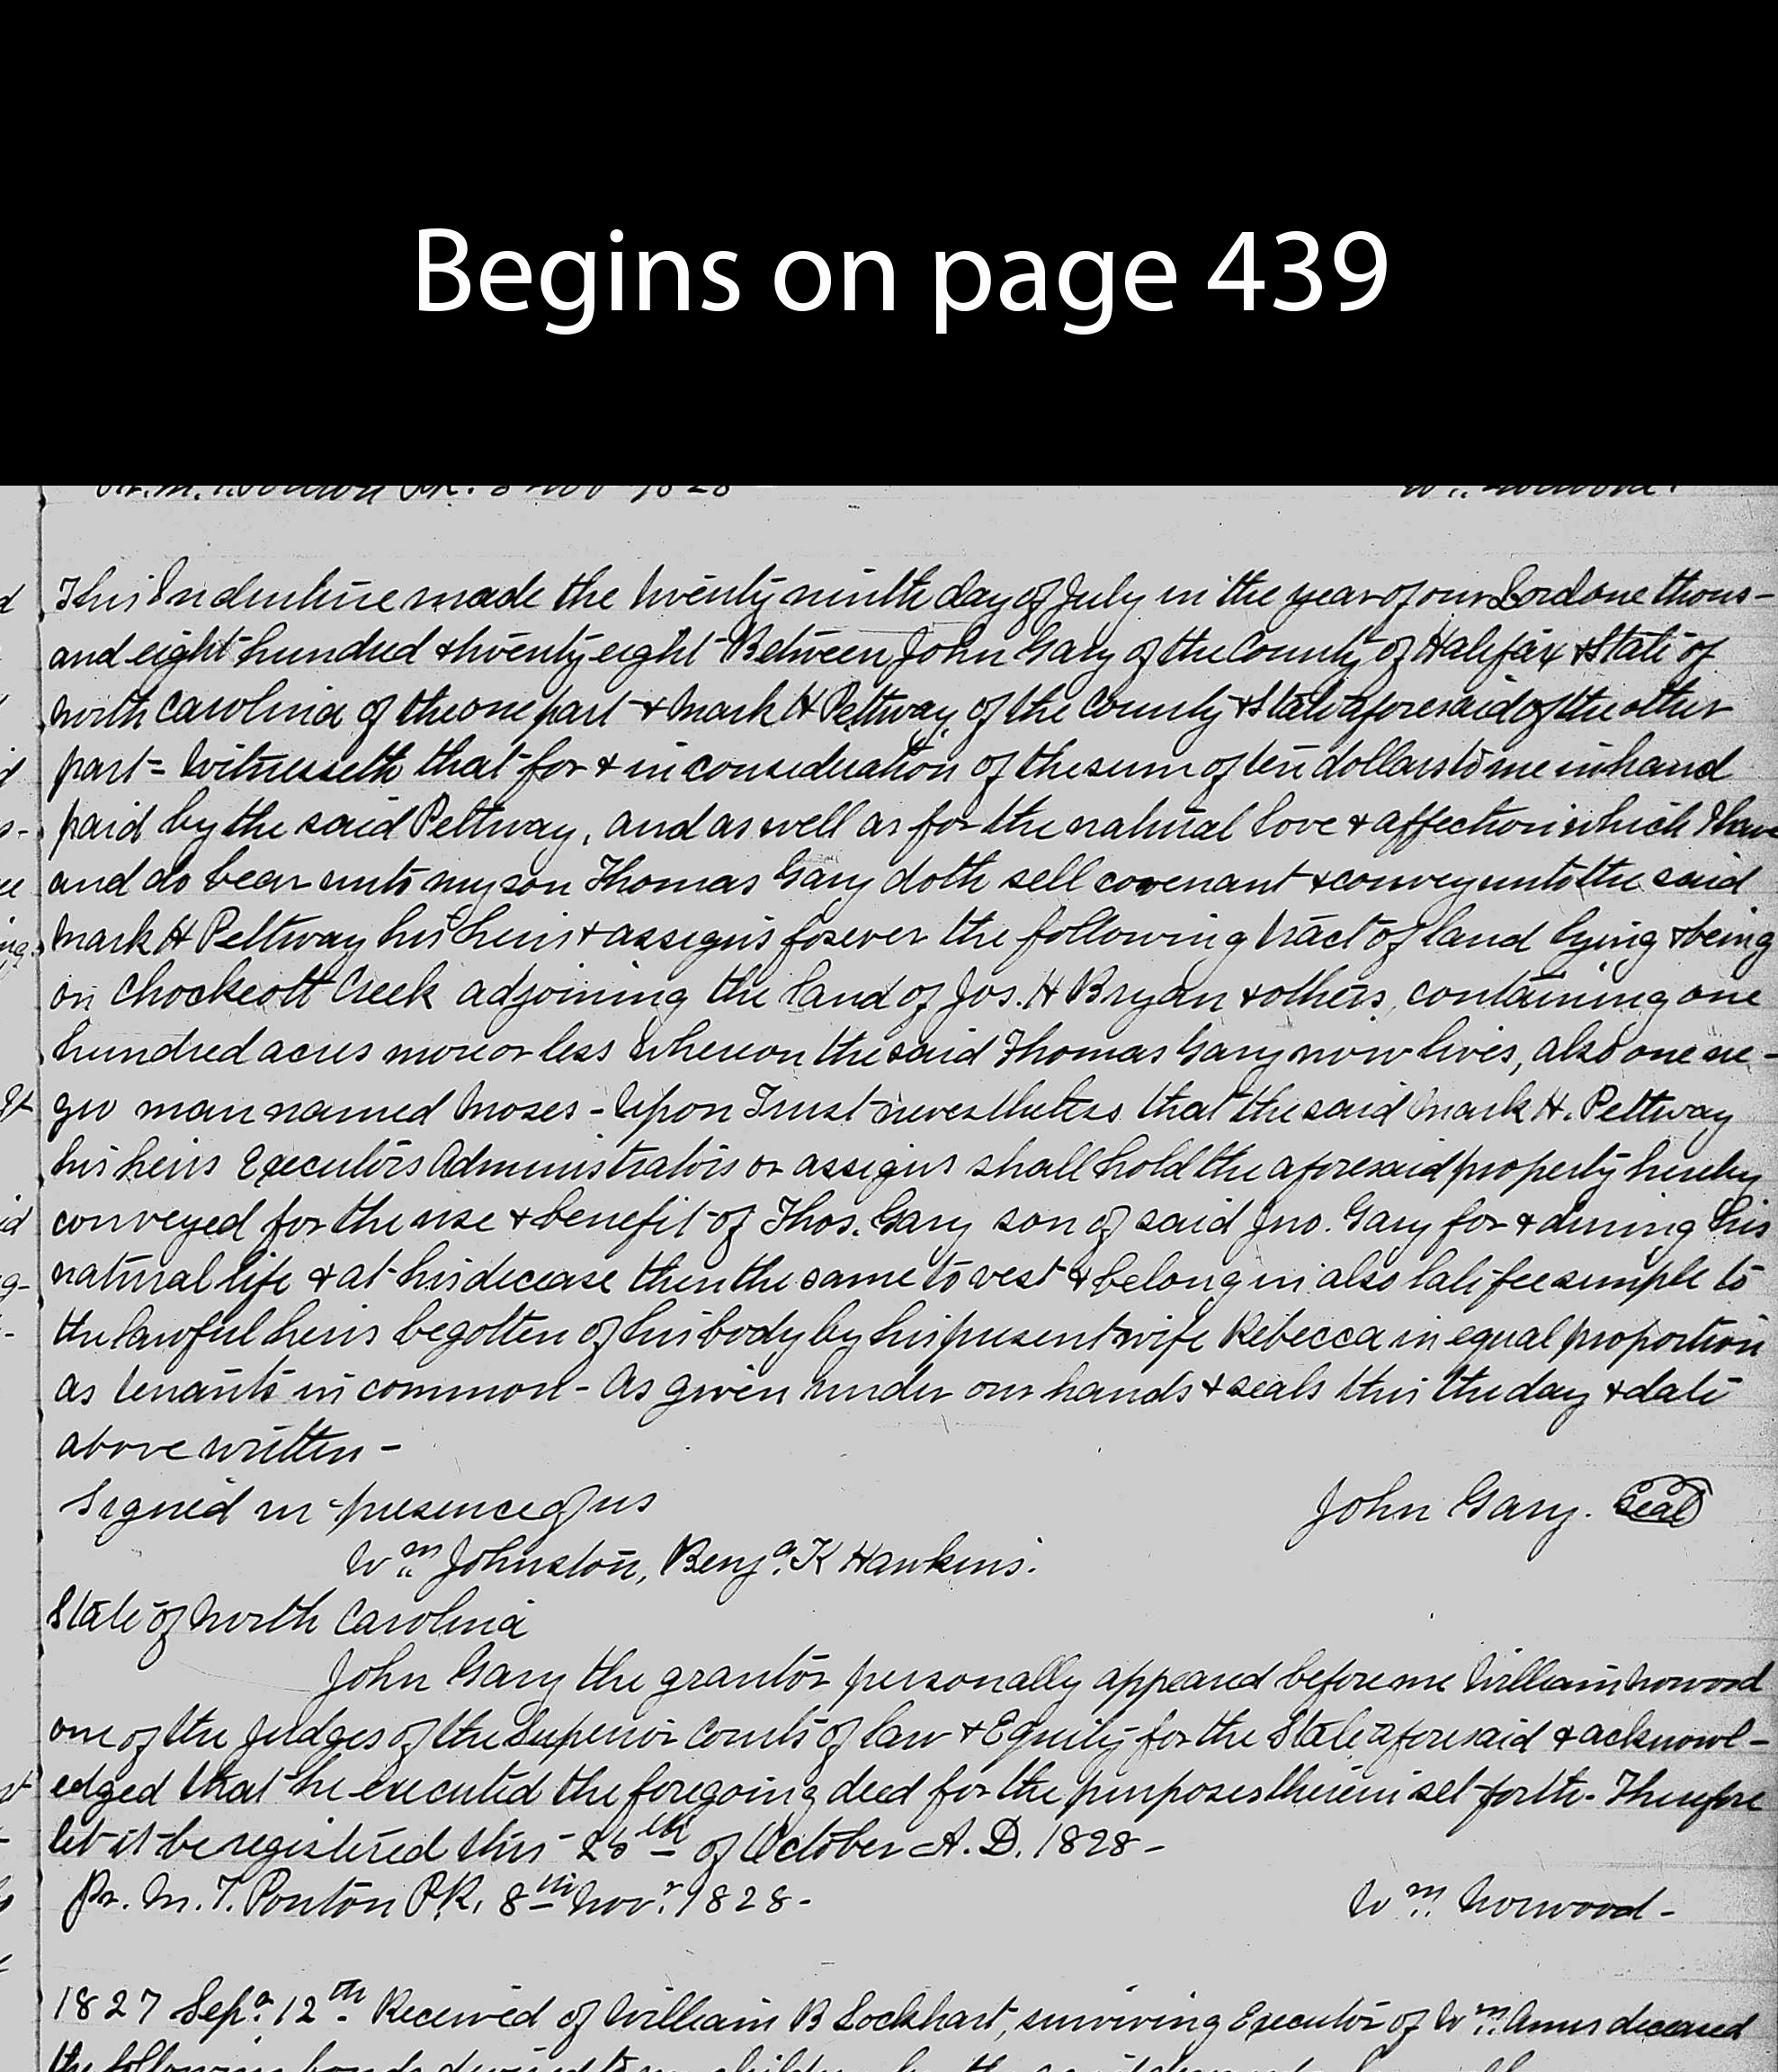 Begins on page 439
1828
This Indenture made the twenty ninth day of July in the year of our Lord one thous-
and eight hundred & twenty eight Between John Gary of the County of Halifax & State of
North Carolina of the one part & Mark H Pettway of the County & State aforesaid of the other
part = Witnesseth that for & in consideration of the sum of ten dollars to me in hand
paid by the said Pettway, and as well as for the natural love & affection which I have
and do bear unto my son Thomas Gary doth sell covenant & convey unto the said
Mark H Pettway his heirs & assigns forever the following tract of land lying & being
on Chockeott Creek adjoining the land of Jos. H Bryan & others, containing one
hundred acres more or less whereon the said Thomas Gary now lives, also one ne-
gro man named Moses - Upon Trust nevertheless that the said Mark H. Pettway
his heirs Executors Administrators or assigns shall hold the aforesaid property hereby
conveyed for the use & benefit of Thos. Gary son of said Jno. Gary for & during his
natural life & at his decease then the same to vest & belong in fee simple to
the lawful heirs begotten of his body by his present wife Rebecca in equal proportion
as tenants in common - As given under our hands & seals this the day & date
above written -
Signed in presence of us John Gary. Seal
Wm Johnston, Benja. K Hawkins.
State of North Carolina
John Gary the grantor personally appeared before me William Norwood
one of the Judges of the Superior Courts of law & Equity for the State aforesaid & acknowl-
edged that he executed the foregoing deed for the purposes therein set forth - Therefore
let it be registered this 26th of October A.D. 1828 -
Pr. M. T. Ponton P.R. 8th Novr. 1828 - Wm. Norwood -
1827 Sepr. 12th Received of William B Lockhart, surviving Executor of Wm. deceased
the following bonds